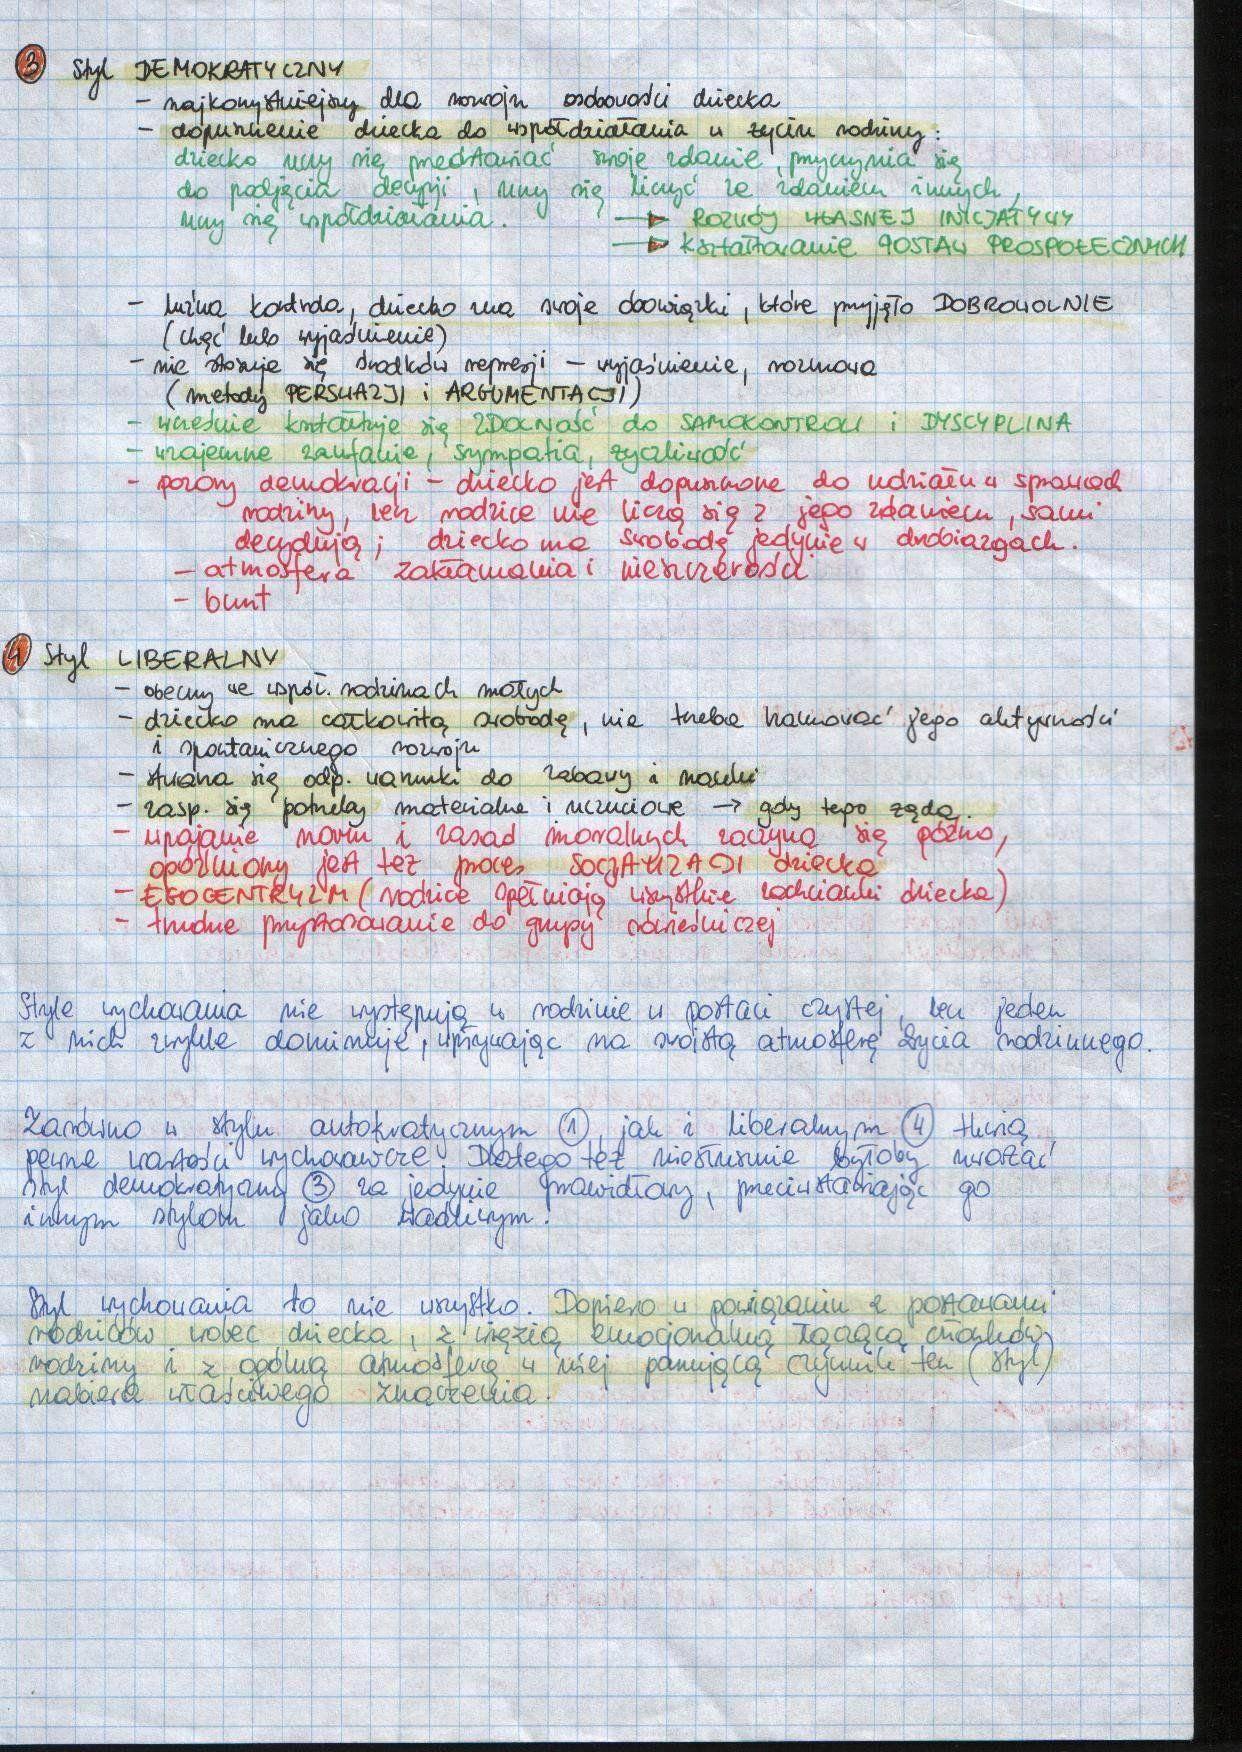 3 Styl DEMOKRATYCZNY
- najkorzystniejszy dla rozwoju osobowości dziecka
- dopuszczenie dziecka do współdziałania w życiu rodziny:
dziecko uczy się przedstawiać swoje zdanie, przyczynia się
do podjęcia decyzji, uczy się liczyć ze zdaniem innych,
uczy się współdziałania.
→ ROZWÓJ WŁASNEJ INICJATYWY
→ kształtowanie POSTAW PROSPOŁECZNYCH
- luźna kontrola, dziecko ma swoje obowiązki, które przyjęło DOBROWOLNIE
(chęć lub wyjaśnienie)
- nie stosuje się środków represji - wyjaśnienie, rozmowa
(metody PERSWAZJI i ARGUMENTACJI)
- wcześnie kształtuje się ZDOLNOŚĆ do SAMOKONTROLI i DYSCYPLINA
- wzajemne zaufanie, sympatia, życzliwość
- pozory demokracji - dziecko jest dopuszczone do udziału w sprawach
rodziny, lecz rodzice nie liczą się z jego zdaniem, sami
decydują; dziecko ma swobodę jedynie w drobiazgach.
- atmosfera zakłamania i nieszczerości
- bunt
4 Styl LIBERALNY
- obecny we współ. rodzinach małych
- dziecko ma całkowitą swobodę, nie trzeba hamować jego aktywności
i spontanicznego rozwoju
- stwarza się odp. warunki do zabawy i nauki
- zasp. się potrzeby materialne i uczuciowe → gdy tego żąda.
- wpajanie norm i zasad moralnych zaczyna się późno,
opóźniony jest też proces SOCJALIZACJI dziecka
- EGOCENTRYZM (rodzice spełniają wszystkie zachcianki dziecka)
- trudne przystosowanie do grupy rówieśniczej
Style wychowania nie występują w rodzinie w postaci czystej, lecz jeden
z nich zwykle dominuje, wpływając na swoistą atmosferę życia rodzinnego.
Zarówno w stylu autokratycznym 1, jak i liberalnym 4 tkwią
pewne wartości wychowawcze. Dlatego też niesłusznie byłoby uważać
styl demokratyczny 3 za jedynie prawidłowy, przeciwstawiając go
innym stylom jako wadliwym.
Styl wychowania to nie wszystko. Dopiero w powiązaniu z postawami
rodziców wobec dziecka, z więzią emocjonalną łączącą członków
rodziny i z ogólną atmosferą w niej panującą czynnik ten (styl)
nabiera właściwego znaczenia.